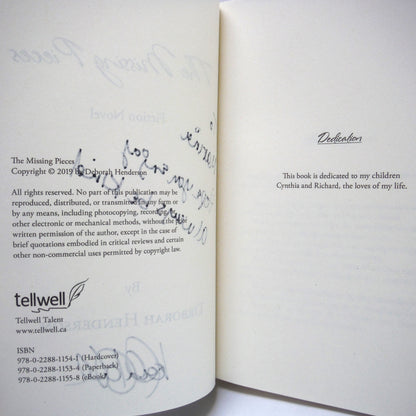 The Missing Pieces
Copyright © 2019 by Deborah Henderson
All rights reserved. No part of this publication may be
reproduced, distributed, or transmitted in any form or
by any means, including photocopying, recording, or
other electronic or mechanical methods, without the prior
written permission of the author, except in the case of
brief quotations embodied in critical reviews and certain
other non-commercial uses permitted by copyright law.
tellwell
Tellwell Talent
www.tellwell.ca
ISBN
978-0-2288-1154-1 (Hardcover)
978-0-2288-1153-4 (Paperback)
978-0-2288-1155-8 (eBook)
The Missing Pieces
Fiction Novel
Hope you enjoy
Always be Kind
By
Deborah Henderson
Dedication
This book is dedicated to my children
Cynthia and Richard, the loves of my life.